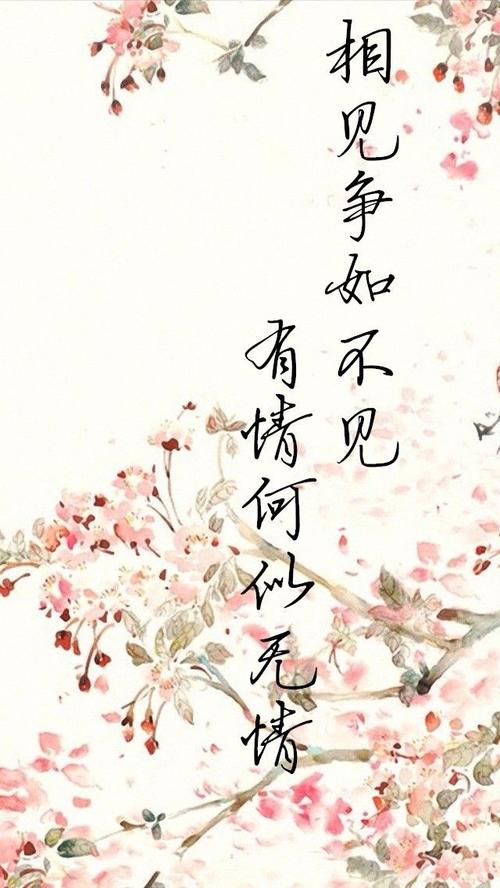 相见争如不见
有情何似无情